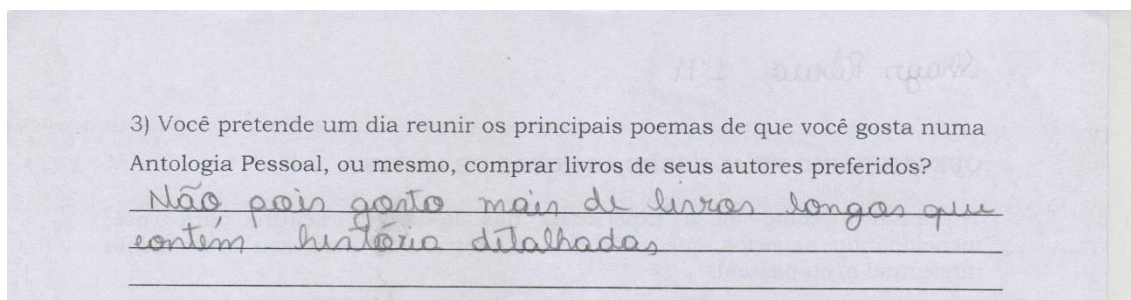 3) Você pretende um dia reunir os principais poemas de que você gosta numa
Antologia Pessoal, ou mesmo, comprar livros de seus autores preferidos?
Não pois gosto mais de livros longos que
contém história ditalhadas